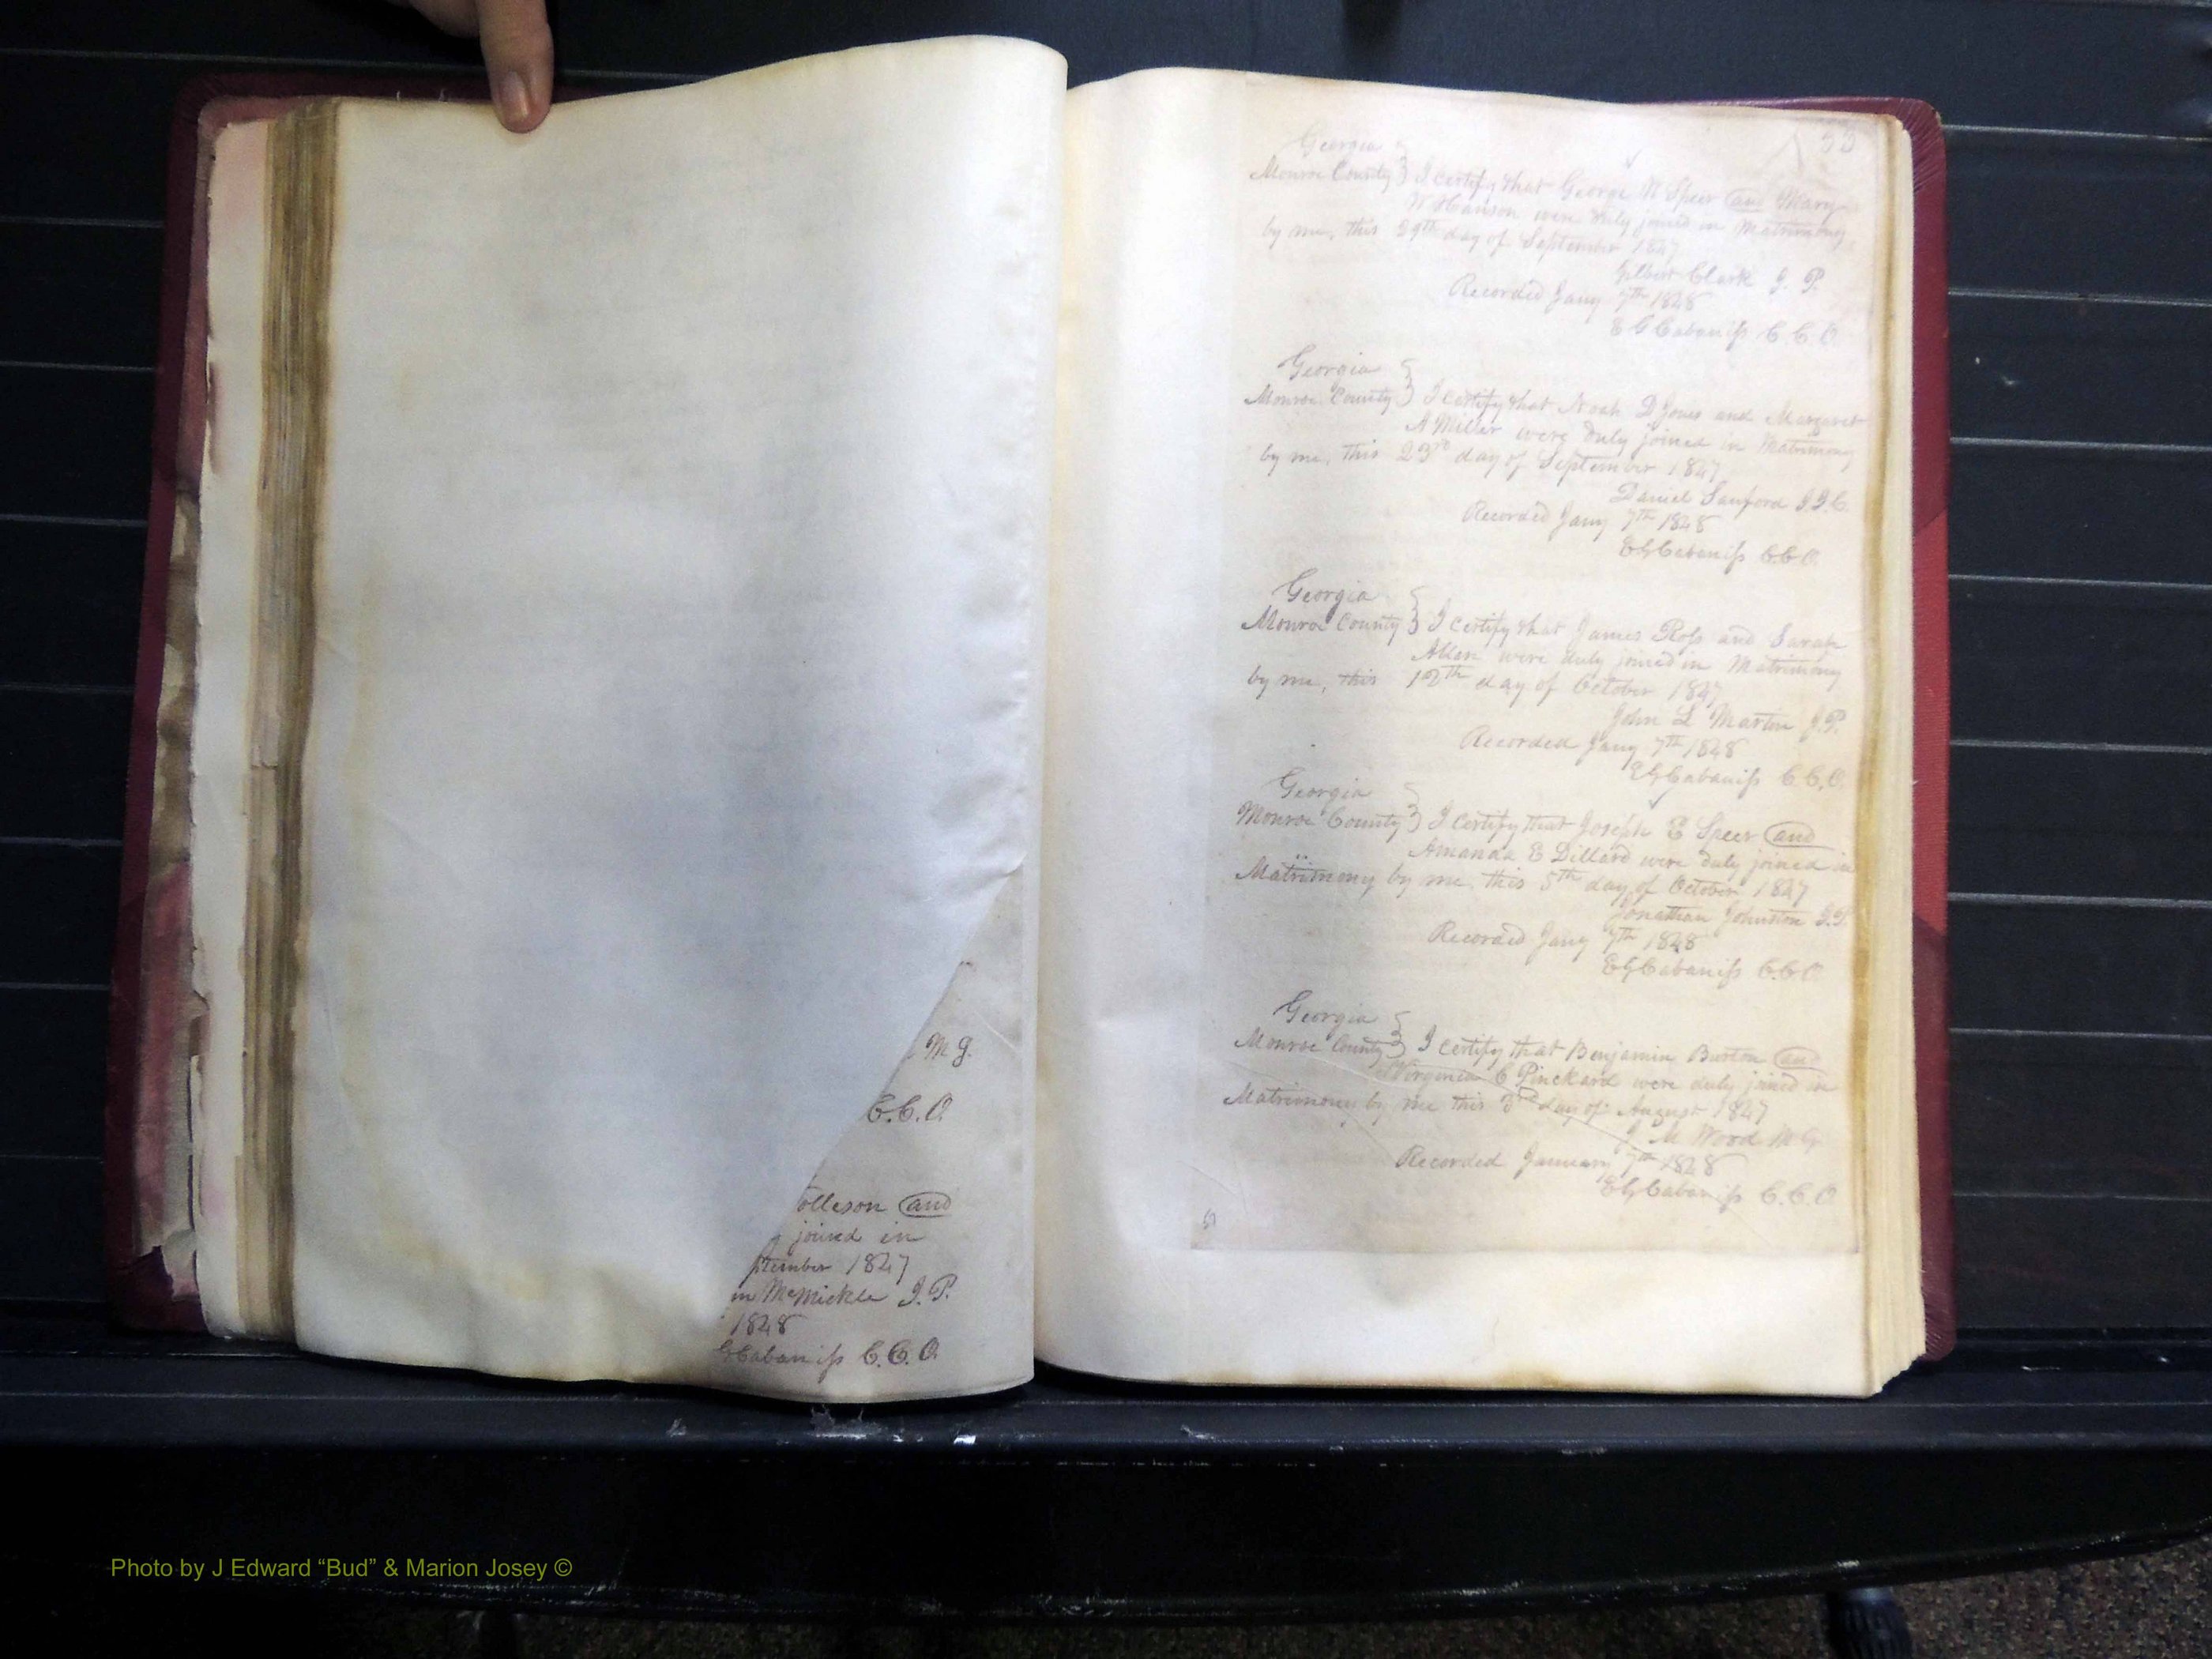 M G.
C.C.O.
olleson and
joined in
ptember 1847
in McMickle J.P.
1848
GCabaniss C.C.O.
53
Georgia
Monroe County } I certify that George W Speer and Mary
W Hanson were duly joined in Matrimony
by me, this 29th day of September 1847
Gilbert Clark J. P.
Recorded Jany 7th 1848
E G Cabaniss C C O
Georgia
Monroe County } I certify that Noah D Jones and Margaret
A Miller were duly joined in Matrimony
by me, this 23rd day of September 1847
Daniel Sanford J.I.C.
Recorded Jany 7th 1848
EGCabaniss C C O
Georgia
Monroe County } I certify that James Ross and Sarah
Allen were duly joined in Matrimony
by me, this 12th day of October 1847
John L Martin J.P.
Recorded Jany 7th 1848
EGCabaniss C C, O
Georgia
Monroe County } I certify that Joseph E Speer and
Amanda E Dillard were duly joined in
Matrimony by me, this 5th day of October 1847
Jonathan Johnston J.P.
Recorded Jany 7th 1848
EGCabaniss C.C O
Georgia
Monroe County } I certify that Benjamin Burton and
Virginia C Pinckard were duly joined in
Matrimony by me this 3rd day of August 1847
J M Wood M G
Recorded January 7th 1848
EGCabaniss C.C.O
Photo by J Edward “Bud” & Marion Josey ©